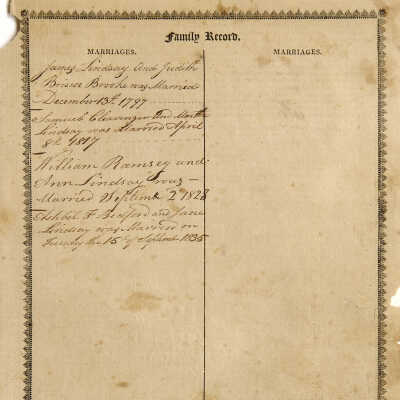 Family Record.
MARRIAGES.
MARRIAGES.
James Lindsay and Judith
Briscoe Brooke was Married
December 13th 1797
Samuel Clavenger and
Lindsay was Married April
8th 1817
William Ramsey and
Ann Lindsay was
Married Septemb 2 1828
F Bedford and Jane
Lindsay was Married on
Tuesday the 15th of Septembr 1835